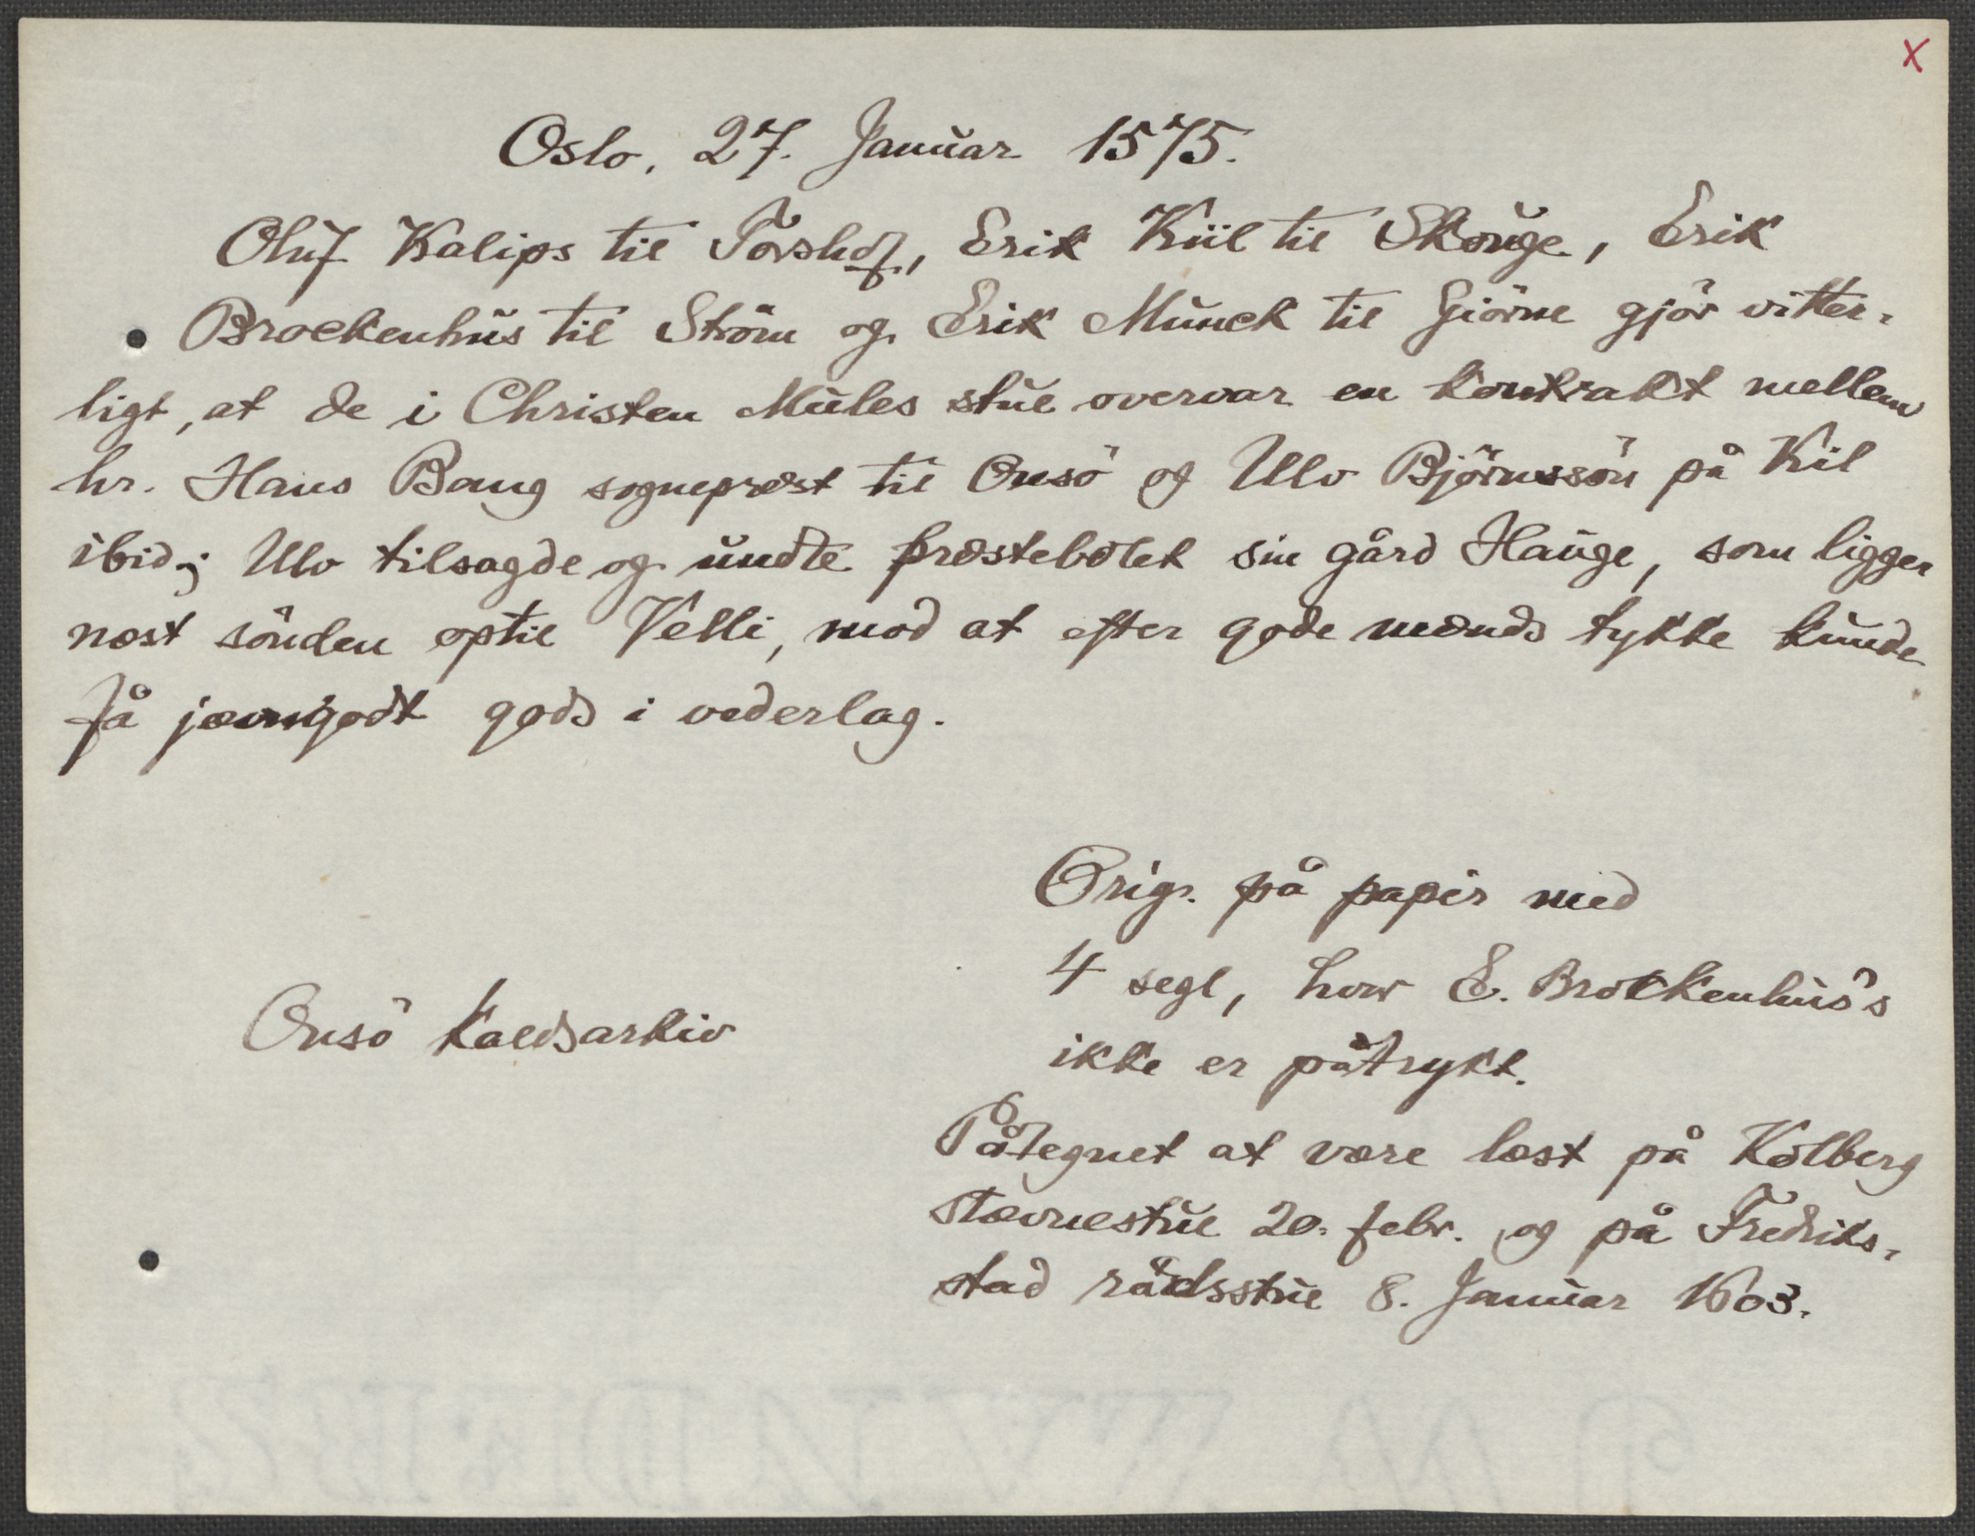 x
Oslo, 27. Januar 1575.
Oluf Kalips til Torshof, Erik Kiil til Skouge, Erik
Brockenhus til Ström og Erik Munck til Giörne gjör vitter-
ligt, at de i Christen Mules stue overvar en kontrakt mellem
hr. Hans Bang sogneprest til Onsö og Ulv Björnssön på Kil
ibid; Ulv tilsagde og undte præstebolet sin gård Hauge, som ligger
næst sönden optil Velli, mod at efter gode mænds tykke kunde
få jævngodt gods i vederlag.
Orig. på papir med
4 segl, hvor E. Brockenhus's
ikke er påtrykt.
Onsö kaldsarkiv
Påtegnet at være læst på Kølberg
stævnestue 20. febr. og på Fredriks-
stad rådsstue 8. Januar 1603.